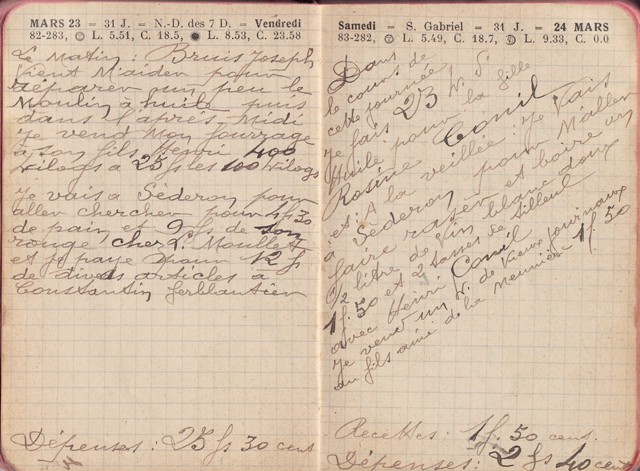 MARS 23 — 31 J. — N.-D. des 7 D. — Vendredi
82-283, L. 5.51, C. 18.5, L. 8.53, C. 23.58
Le Matin : Bruis Joseph
vient M'aider pour
réparer un peu le
Moulin à huile puis
dans l'après Midi
je vend Mon fourrage
à son fils Henri 400
Kilogs à 25 fs les 100 Kilogs
je vais à Séderon pour
aller chercher pour 1f.30
de pain et 9 fs de son
rouge chez L. Moullet
et je paye pour 12 fs
de divers articles à
Constantin ferblantier
Dépenses : 25 fs 30 cent
Samedi — S. Gabriel — 31 J. — 24 MARS
83-282, L. 5.49, C. 18.7, L. 9.33, C. 0.0
Dans
le cours de
cette journée,
je fais 23 K. d'
Huile pour la fille
Rosine Conil
et : A la veillée : je Vais
à Séderon pour M'aller
faire raser et boire un
1/2 litre de vin blanc doux
1f.50 et 2 tasses de tilleul
avec Henri Conil
je vend un K. de vieux journaux
au fils ainé de la meunière 1f.50
Recettes : 1f.50 cent.
Dépenses : 2 fs 40 cent